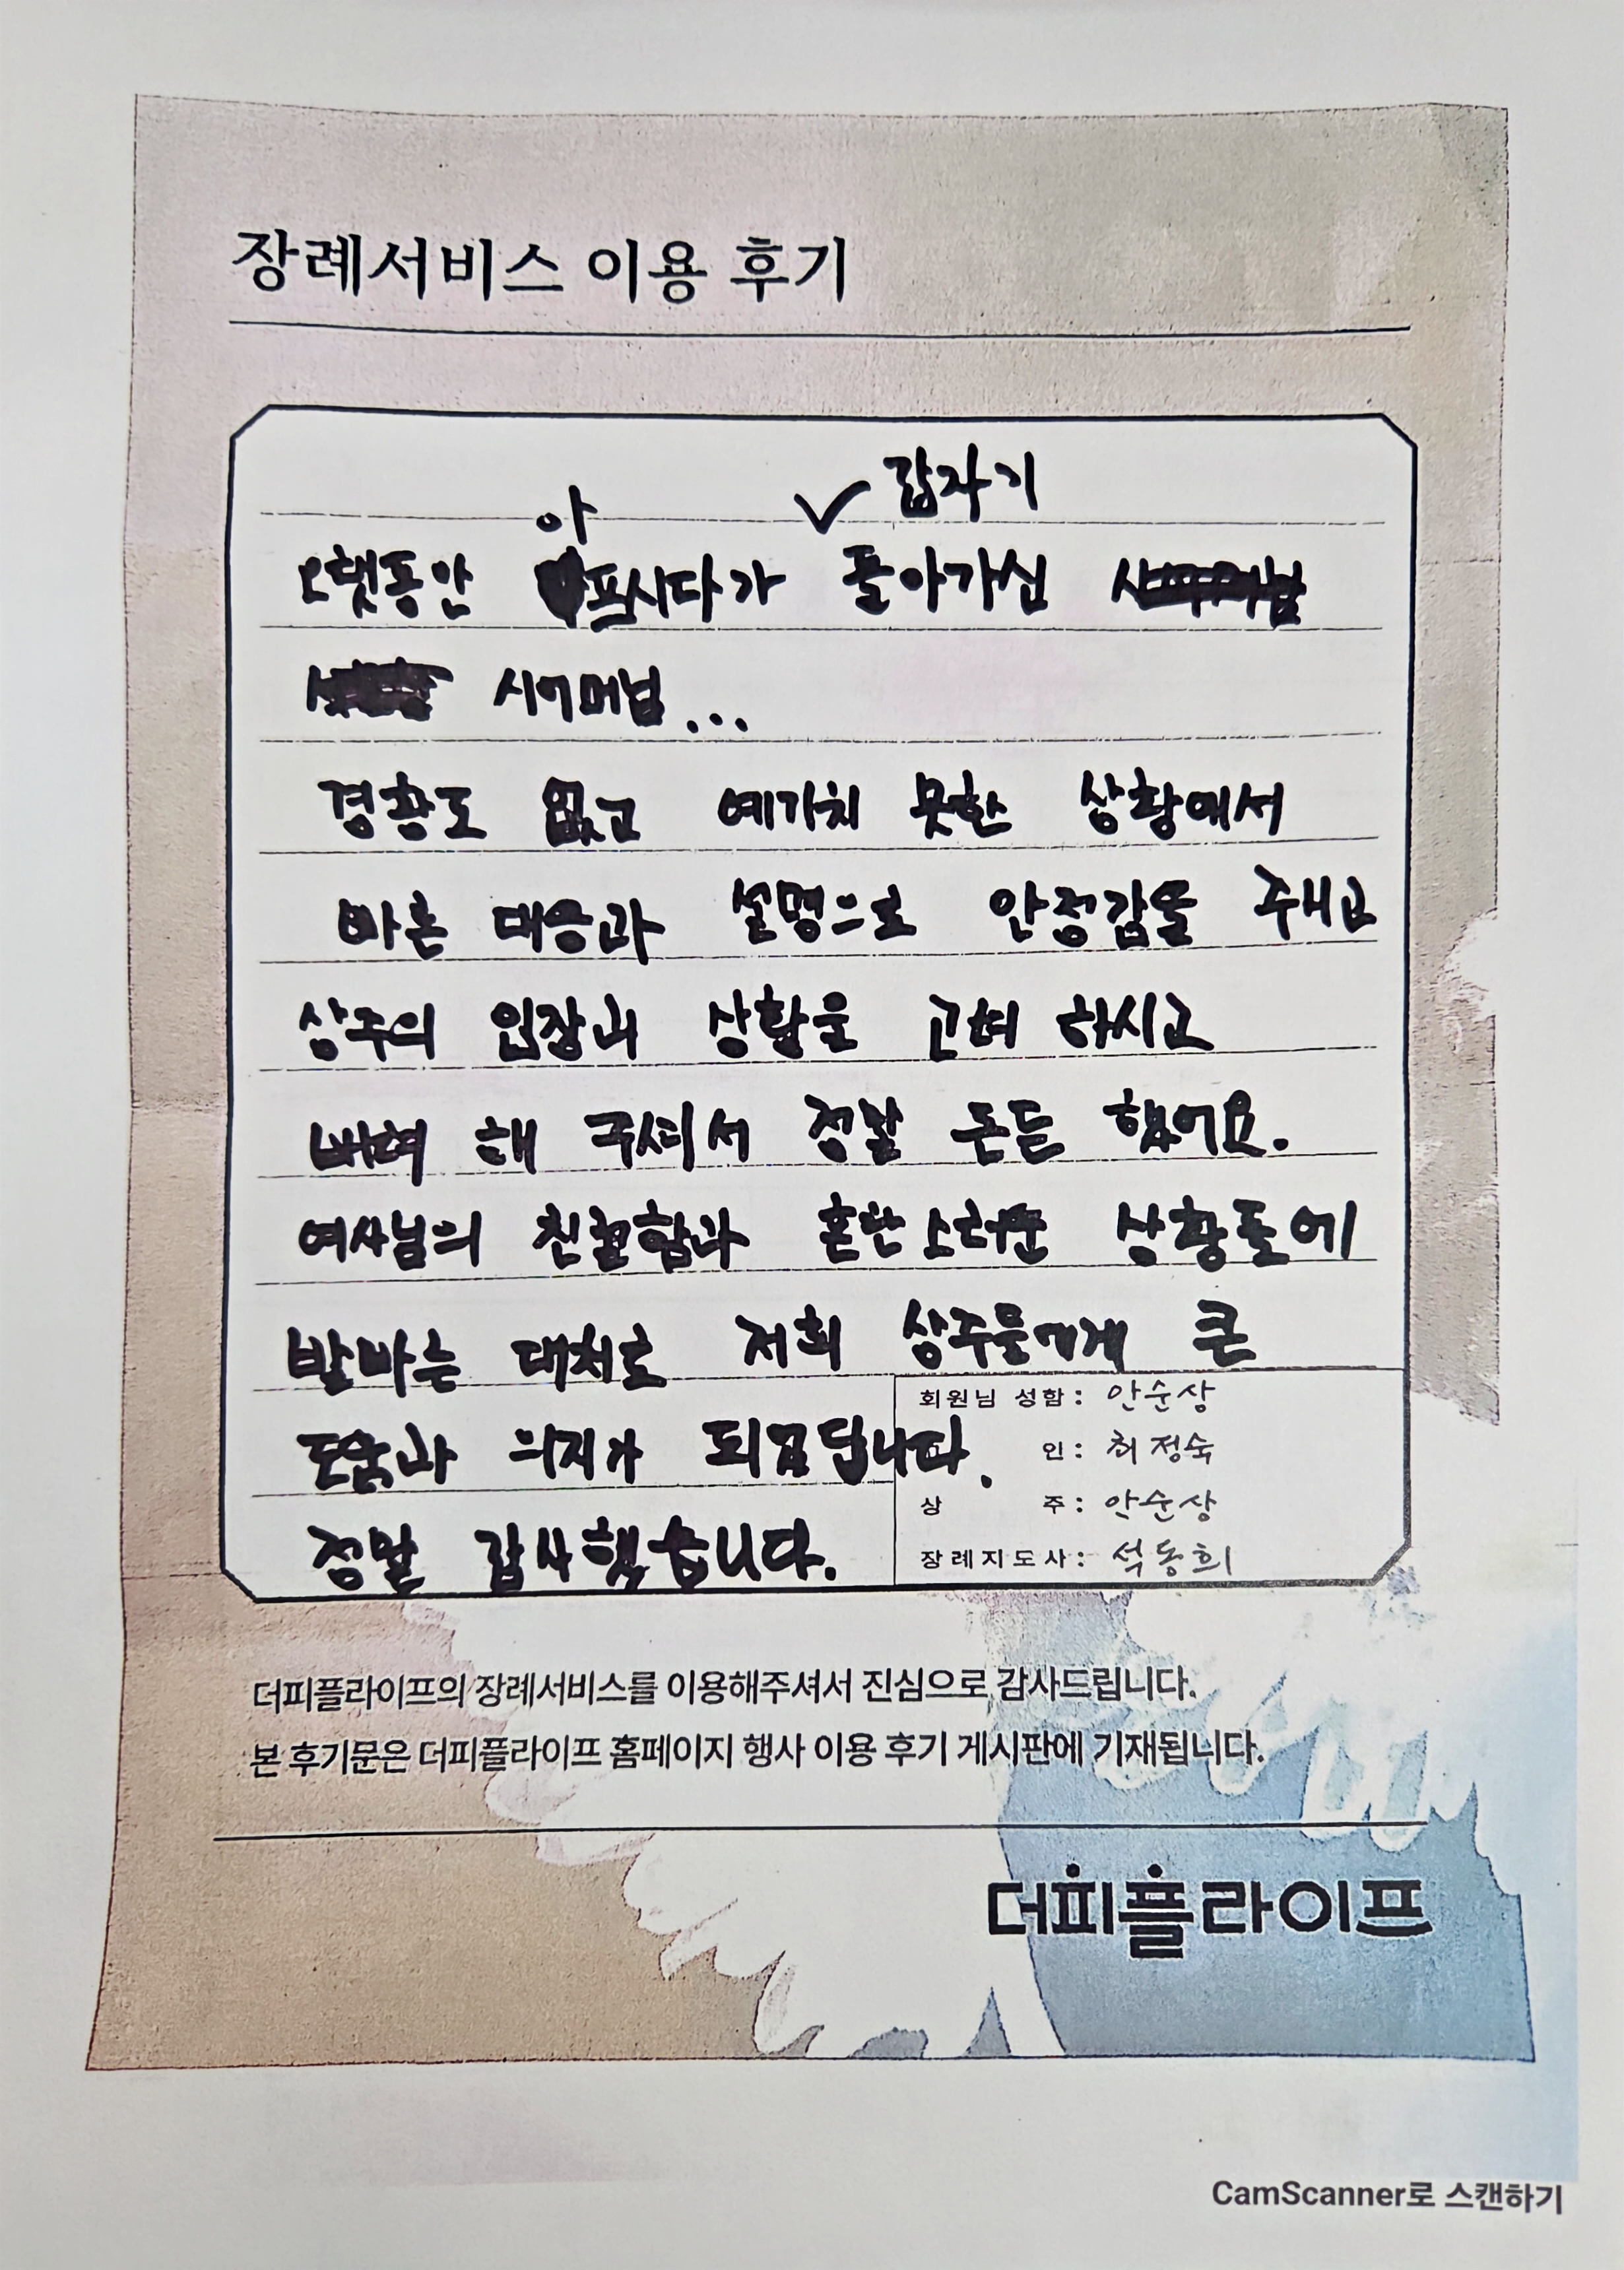 장례서비스 이용 후기
아 ✓ 갑자기
오랫동안 프시다가 돌아가신
시어머님...
경황도 없고 예기치 못한 상황에서
빠른 대응과 설명으로 안정감을 주시고
상주의 입장과 상황을 고려 하시고
배려 해 주셔서 정말 든든 했어요.
여사님의 친절함과 혼란스러운 상황들에
발빠른 대처로 저희 상주들에게 큰
도움과 의지가 되었답니다.
정말 감사했습니다.
회원님 성함: 안순상
인: 허정숙
상 주: 안순상
장례지도사: 석동희
더피플라이프의 장례서비스를 이용해주셔서 진심으로 감사드립니다.
본 후기문은 더피플라이프 홈페이지 행사 이용 후기 게시판에 기재됩니다.
더피플라이프
CamScanner로 스캔하기